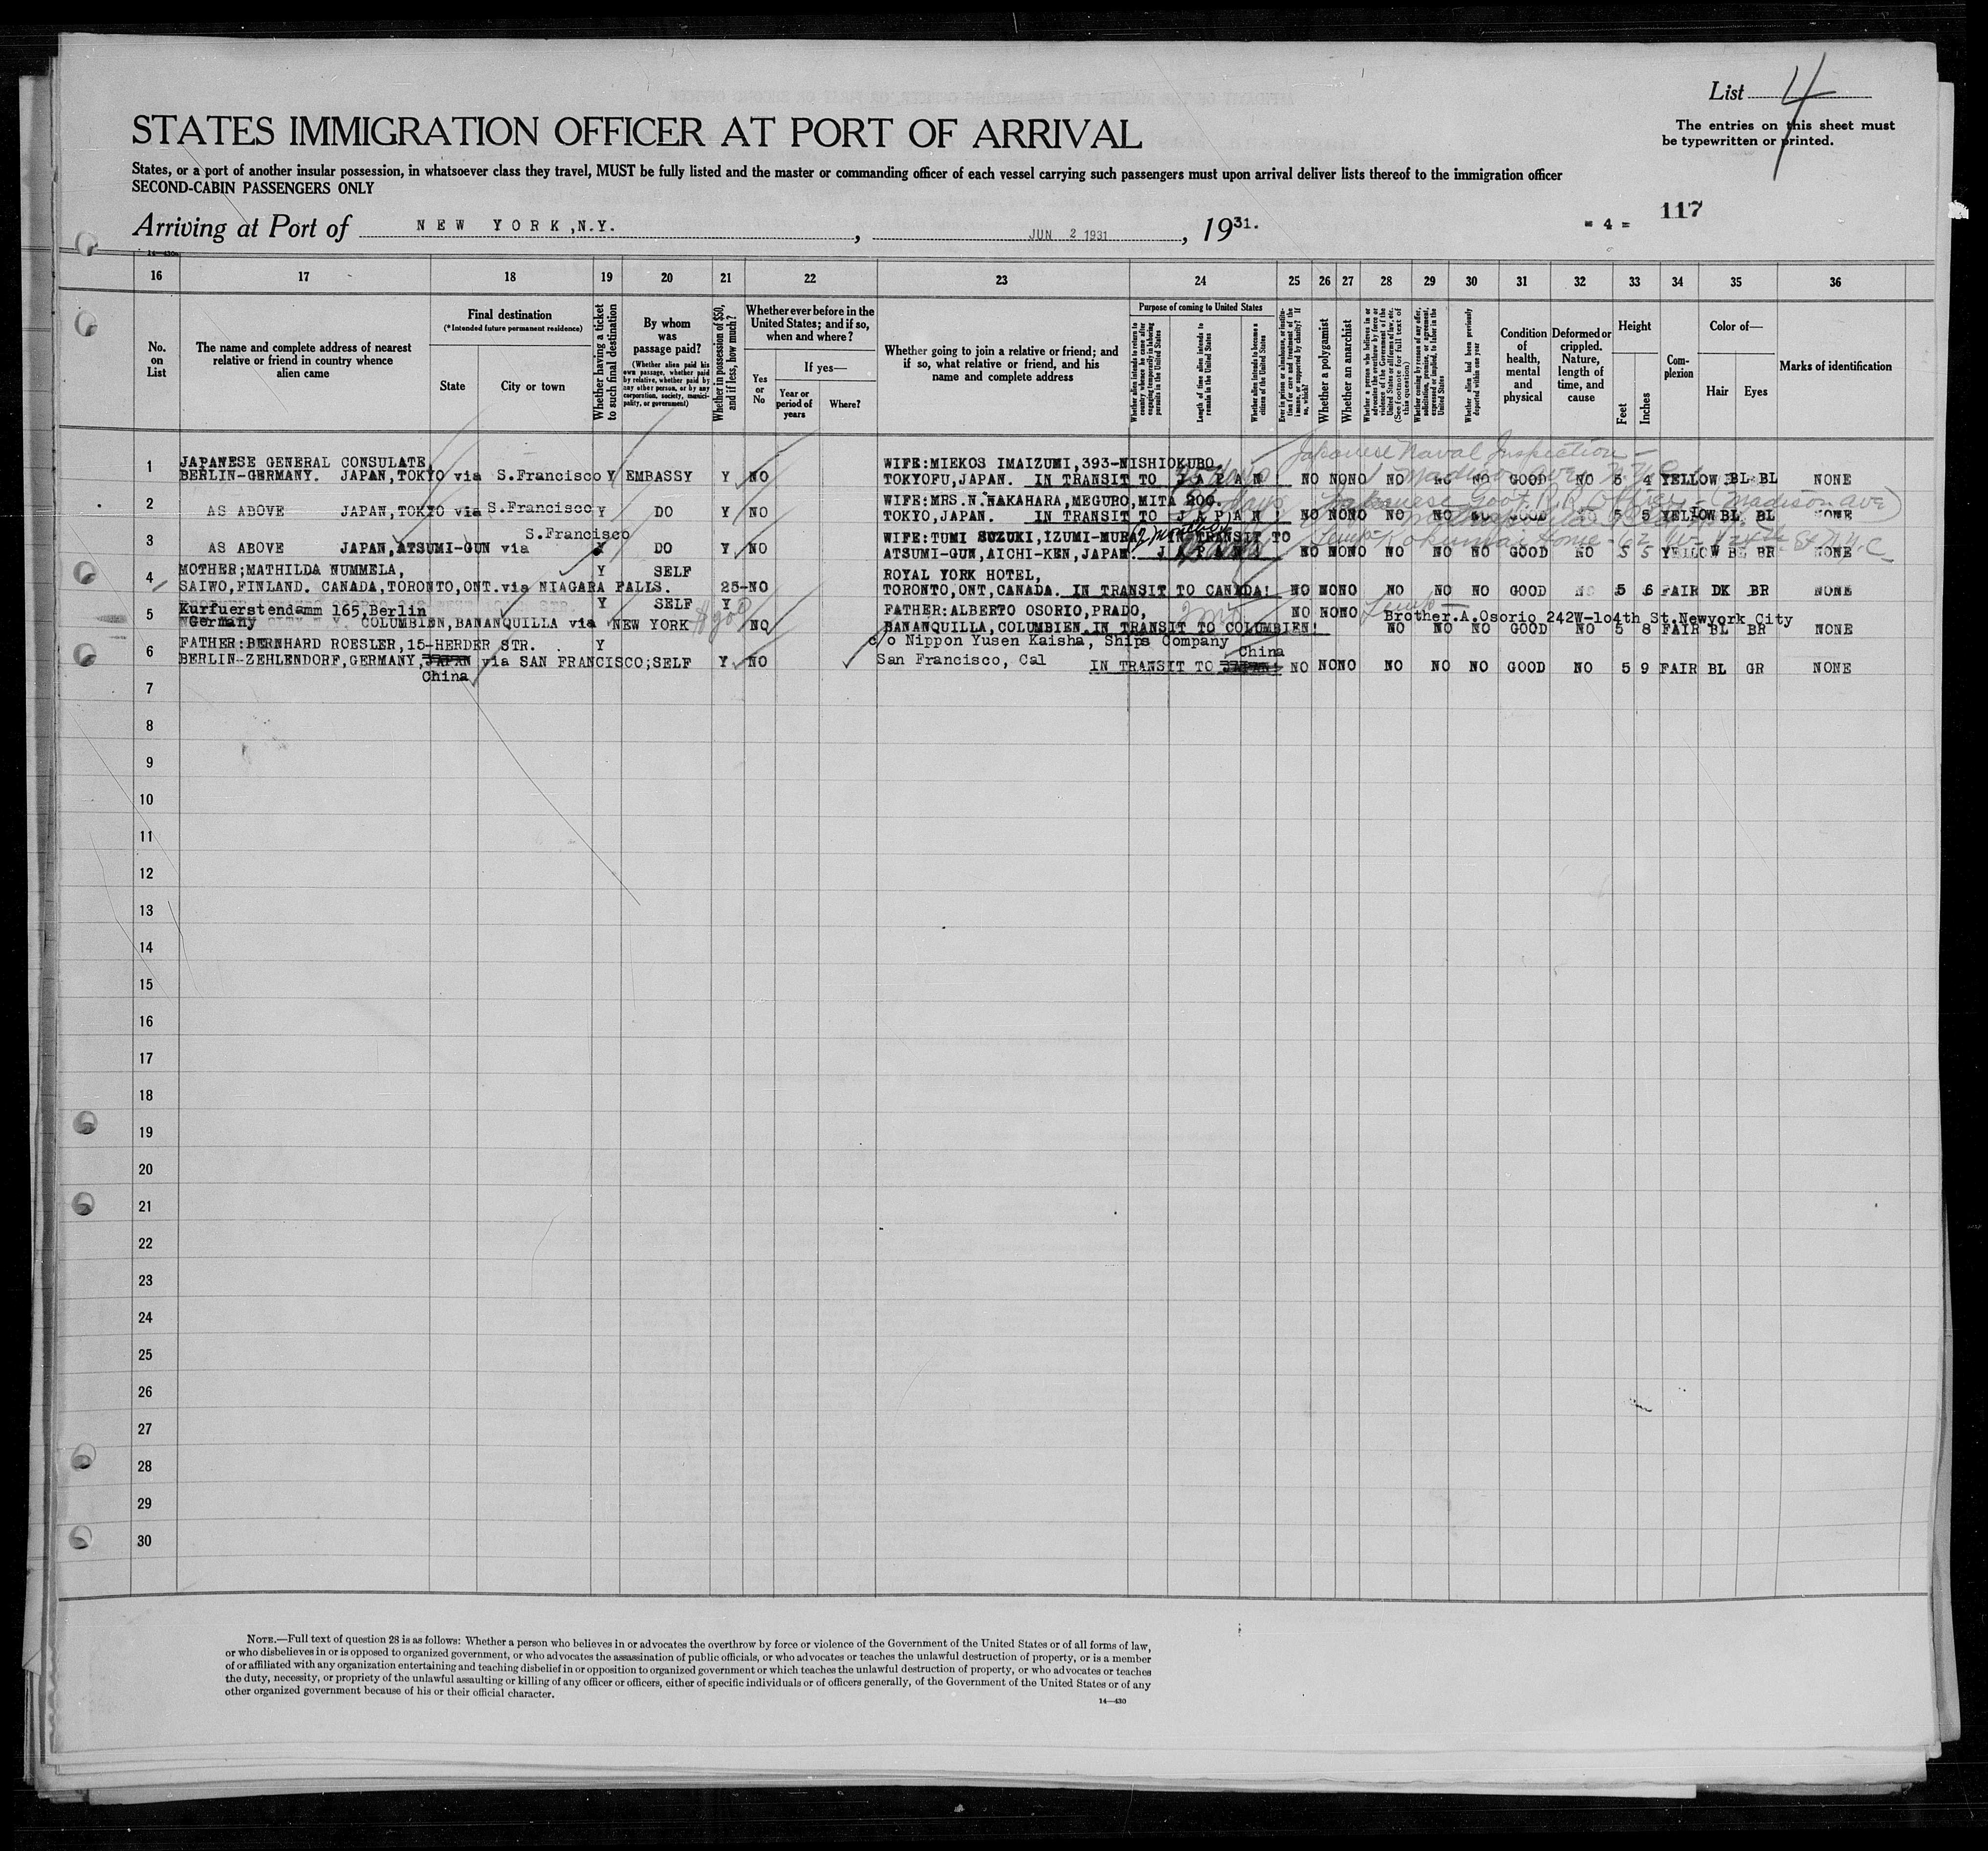 List 4
The entries on this sheet must
be typewritten or printed.
STATES IMMIGRATION OFFICER AT PORT OF ARRIVAL
States, or a port of another insular possession, in whatsoever class they travel, MUST be fully listed and the master or commanding officer of each vessel carrying such passengers must upon arrival deliver lists thereof to the immigration officer
SECOND-CABIN PASSENGERS ONLY
Arriving at Port of NEW YORK, N.Y. , JUN 2 1931 , 1931.
= 4 =
117
14—430
16 17 18 19 20 21 22 23 24 25 26 27 28 29 30 31 32 33 34 35 36
No. on List
The name and complete address of nearest relative or friend in country whence alien came
Final destination
(*Intended future permanent residence)
State
City or town
Whether having a ticket to such final destination
By whom was passage paid?
(Whether alien paid his own passage, whether paid by relative, whether paid by any other person, or by any corporation, society, municipality, or government)
Whether in possession of $50, and if less, how much?
Whether ever before in the United States; and if so, when and where?
Yes or No
If yes—
Year or period of years
Where?
Whether going to join a relative or friend; and if so, what relative or friend, and his name and complete address
Purpose of coming to United States
Whether alien intends to return to country whence he came after engaging temporarily in laboring pursuits in the United States
Length of time alien intends to remain in the United States
Whether alien intends to become a citizen of the United States
Ever in prison or almshouse, or institution for care and treatment of the insane, or supported by charity? If so, which?
Whether a polygamist
Whether an anarchist
Whether a person who believes in or advocates the overthrow by force or violence of the Government of the United States or all forms of law, etc. (See footnote for full text of this question)
Whether coming by reason of any offer, solicitation, promise, or agreement, expressed or implied, to labor in the United States
Whether alien had been previously deported within one year
Condition of health, mental and physical
Deformed or crippled. Nature, length of time, and cause
Height
Feet
Inches
Complexion
Color of—
Hair
Eyes
Marks of identification
Japanese Naval Inspection —
1 JAPANESE GENERAL CONSULATE, WIFE:MIEKOS IMAIZUMI,393-NISHIOKUBO
BERLIN-GERMANY. JAPAN,TOKYO via S.Francisco Y EMBASSY Y NO TOKYOFU,JAPAN. IN TRANSIT TO JAPAN NO NO NO NO NO NO GOOD NO 5 4 YELLOW BL BL NONE
1 Madison Ave N.Y.C.
2 WIFE:MRS.N.NAKAHARA,MEGURO,MITA 200
Japanese Govt R.R. Office - (Madison ave)
AS ABOVE JAPAN,TOKYO via S.Francisco Y DO Y NO TOKYO,JAPAN. IN TRANSIT TO JAPAN! NO NO NO NO NO NO GOOD NO 5 5 YELLOW BL BL NONE
3 S.Francisco WIFE:TUMI SUZUKI,IZUMI-MURA, IN TRANSIT TO
AS ABOVE JAPAN,ATSUMI-GUN via Y DO Y NO ATSUMI-GUN,AICHI-KEN,JAPAN. JAPAN! NO NO NO NO NO NO GOOD NO 5 5 YELLOW BL BR NONE
4 MOTHER;MATHILDA NUMMELA, Y SELF ROYAL YORK HOTEL,
SAIWO,FINLAND. CANADA,TORONTO,ONT.via NIAGARA FALLS. 25-NO TORONTO,ONT,CANADA. IN TRANSIT TO CANADA! NO NO NO NO NO NO GOOD NO 5 6 FAIR DK BR NONE
5 Kurfuerstendamm 165,Berlin Y SELF Y FATHER:ALBERTO OSORIO,PRADO, NO NO NO Brother.A.Osorio 242W-104th St.Newyork City
Germany COLUMBIEN,BANANQUILLA via NEW YORK NO BANANQUILLA,COLUMBIEN.IN TRANSIT TO COLUMBIEN! NO NO NO GOOD NO 5 8 FAIR BL BR NONE
6 FATHER:BERNHARD ROESLER,15-HERDER STR. Y c/o Nippon Yusen Kaisha, Ships Company
China
BERLIN-ZEHLENDORF,GERMANY,JAPAN via SAN FRANCISCO;SELF Y NO San Francisco, Cal IN TRANSIT TO JAPAN! NO NO NO NO NO NO GOOD NO 5 9 FAIR BL GR NONE
China
7
8
9
10
11
12
13
14
15
16
17
18
19
20
21
22
23
24
25
26
27
28
29
30
NOTE.—Full text of question 28 is as follows: Whether a person who believes in or advocates the overthrow by force or violence of the Government of the United States or of all forms of law,
or who disbelieves in or is opposed to organized government, or who advocates the assassination of public officials, or who advocates or teaches the unlawful destruction of property, or is a member
of or affiliated with any organization entertaining and teaching disbelief in or opposition to organized government or which teaches the unlawful destruction of property, or who advocates or teaches
the duty, necessity, or propriety of the unlawful assaulting or killing of any officer or officers, either of specific individuals or of officers generally, of the Government of the United States or of any
other organized government because of his or their official character.
14—430